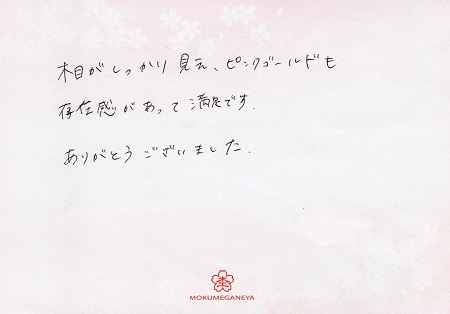 木目がしっかり見え、ピンクゴールドも
存在感があって満足です.
ありがとうございました.
MOKUMEGANEYA